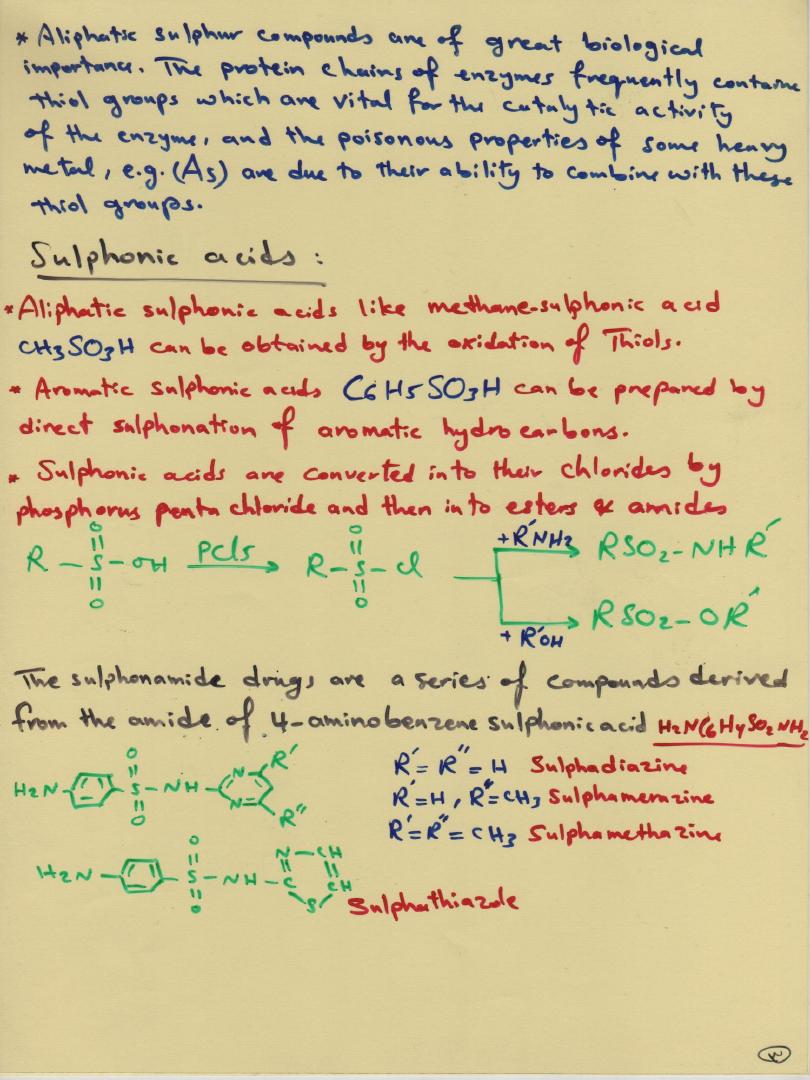 * Aliphatic sulphur compounds are of great biological
importance. The protein chains of enzymes frequently contains
thiol groups which are vital for the catalytic activity
of the enzyme, and the poisonous properties of some heavy
metal, e.g. (As) are due to their ability to combine with these
thiol groups.
Sulphonic acids :
* Aliphatic sulphonic acids like methane-sulphonic acid
CH3SO3H can be obtained by the oxidation of Thiols.
* Aromatic sulphonic acids C6H5SO3H can be prepared by
direct sulphonation of aromatic hydrocarbons.
* Sulphonic acids are converted into their chlorides by
phosphorus penta chloride and then into esters & amides
O O +R'NH2
R - S - OH PCl5 R - S - Cl RSO2 - NHR'
O O RSO2 - OR'
+ R'OH
The sulphonamide drugs are a series of compounds derived
from the amide of 4-aminobenzene sulphonic acid H2NC6H4SO2NH2
O N R' R' = R'' = H Sulphadiazine
H2N - S - NH - N R'' R' = H, R'' = CH3 Sulphamerazine
O R' = R'' = CH3 Sulphamethazine
O N - CH
H2N - S - NH - C CH
O S Sulphathiazole